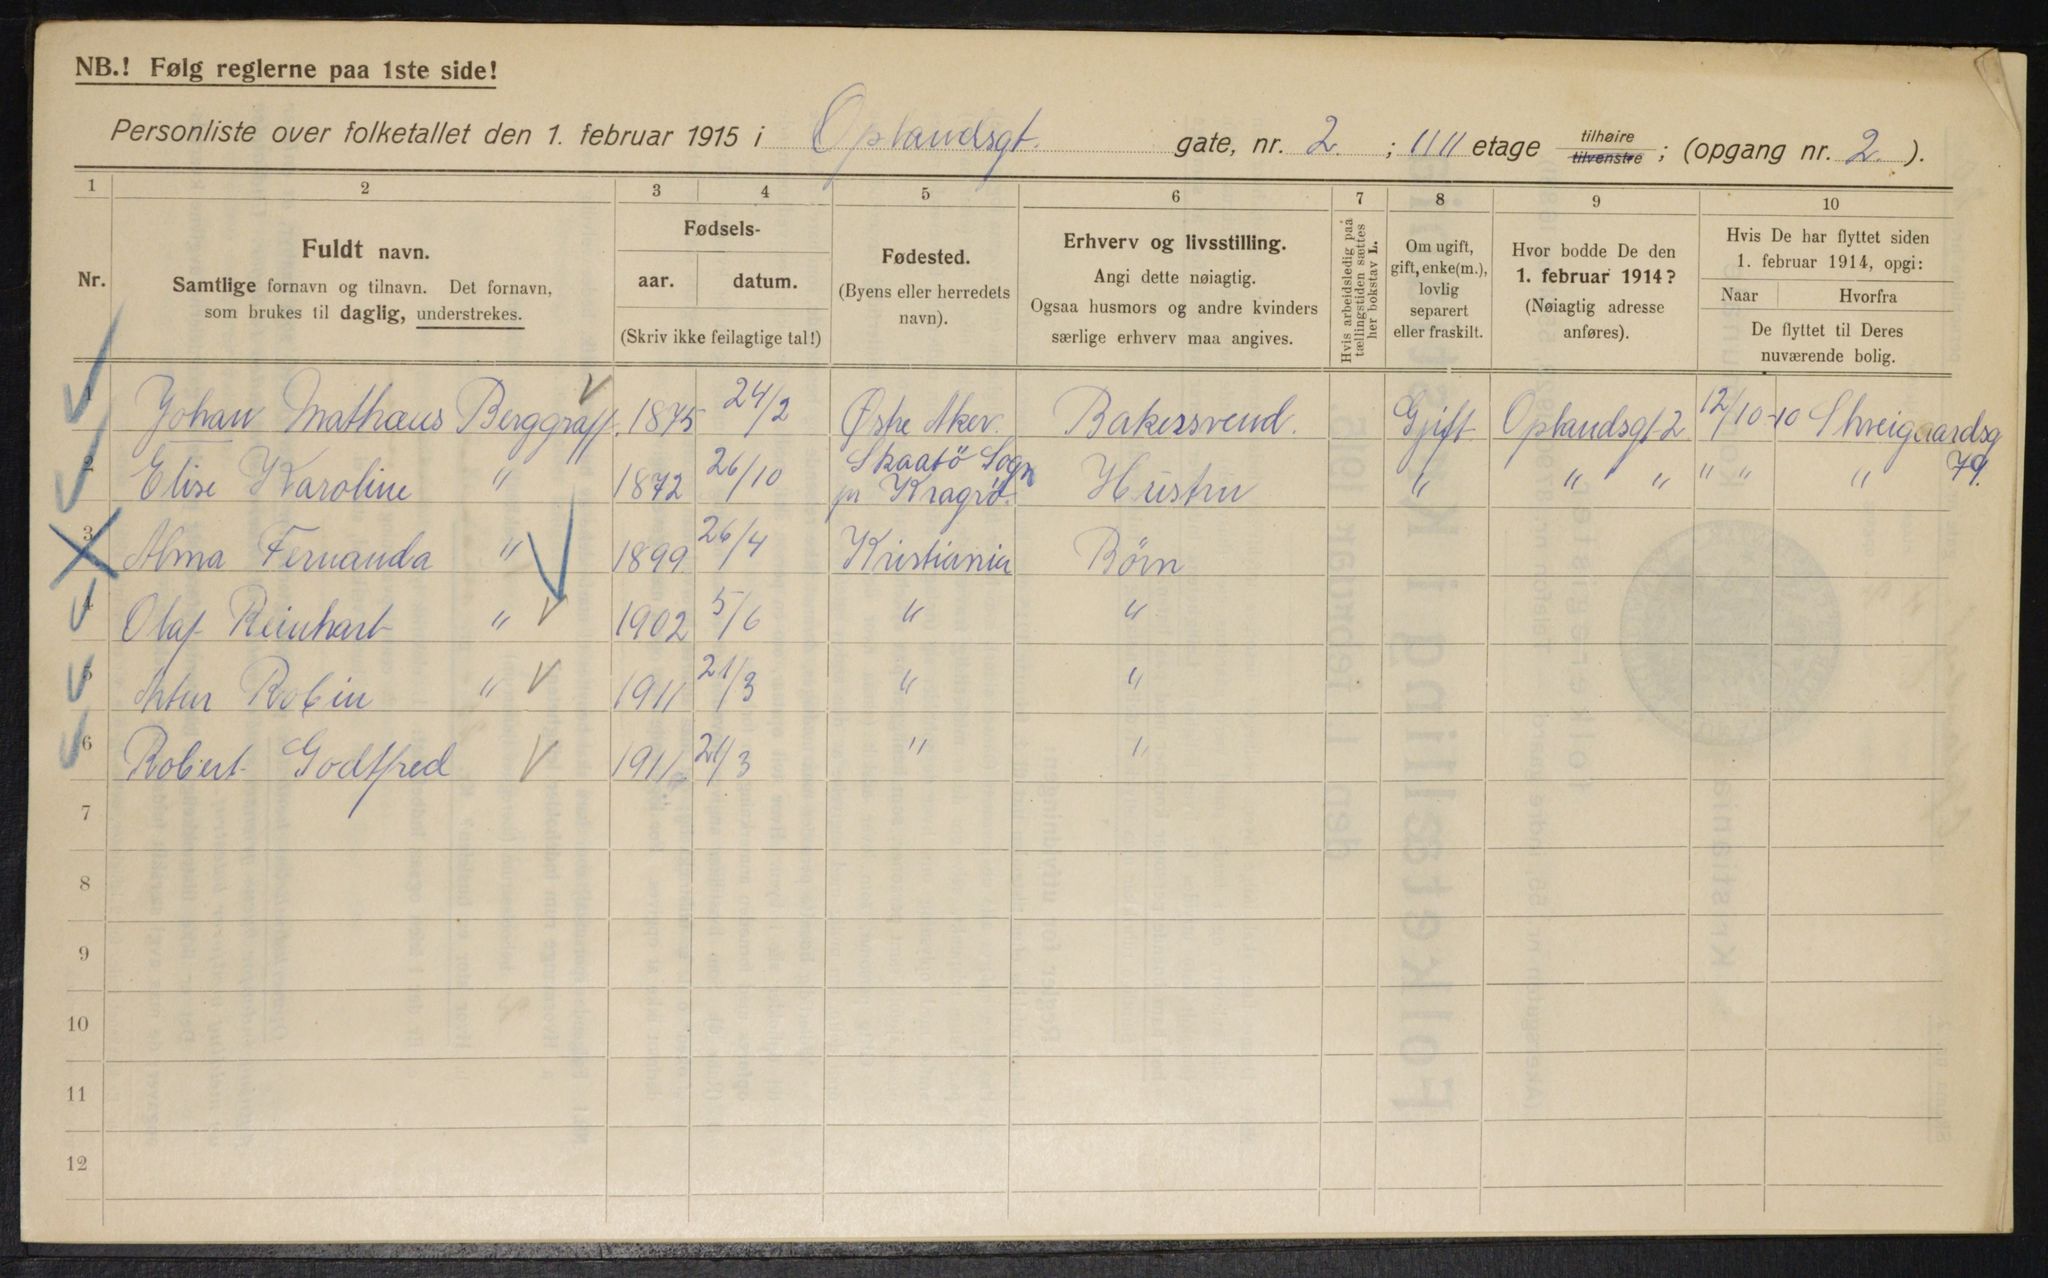 NB.! Følg reglerne paa 1ste side!
Personliste over folketallet den 1. februar 1915 i Oplandsgt. gate, nr. 2. ; IIII etage tilhøire tilvenstre ; (opgang nr. 2. ).
1 2 3 4 5 6 7 8 9 10
Nr.
Fuldt navn.
Samtlige fornavn og tilnavn. Det fornavn,
som brukes til daglig, understrekes.
Fødsels-
aar. datum.
(Skriv ikke feilagtige tal!)
Fødested.
(Byens eller herredets
navn).
Erhverv og livsstilling.
Angi dette nøiagtig.
Ogsaa husmors og andre kvinders
særlige erhverv maa angives.
Hvis arbeidsledig paa
tællingstiden sættes
her bokstav L.
Om ugift,
gift, enke(m.),
lovlig
separert
eller fraskilt.
Hvor bodde De den
1. februar 1914?
(Nøiagtig adresse
anføres).
Hvis De har flyttet siden
1. februar 1914, opgi:
Naar Hvorfra
De flyttet til Deres
nuværende bolig.
1 Johan Mathæus Berggraff. 1875 24/2 Østre Aker. Bakersvend. Gift Oplandsgt 2 12/10-10 Shveigaardsg 79.
2 Elise Karoline " 1872 26/10 Skaatö Sogn pr Kragrö. Hustru " " " " " "
3 Alma Fernanda " 1899 26/4 Kristiania Børn
4 Olaf Reinhart " 1902 5/6 " "
5 Artur Robin " 1911 21/3 " "
6 Robert Godtfred 1911 21/3 " "
7
8
9
10
11
12